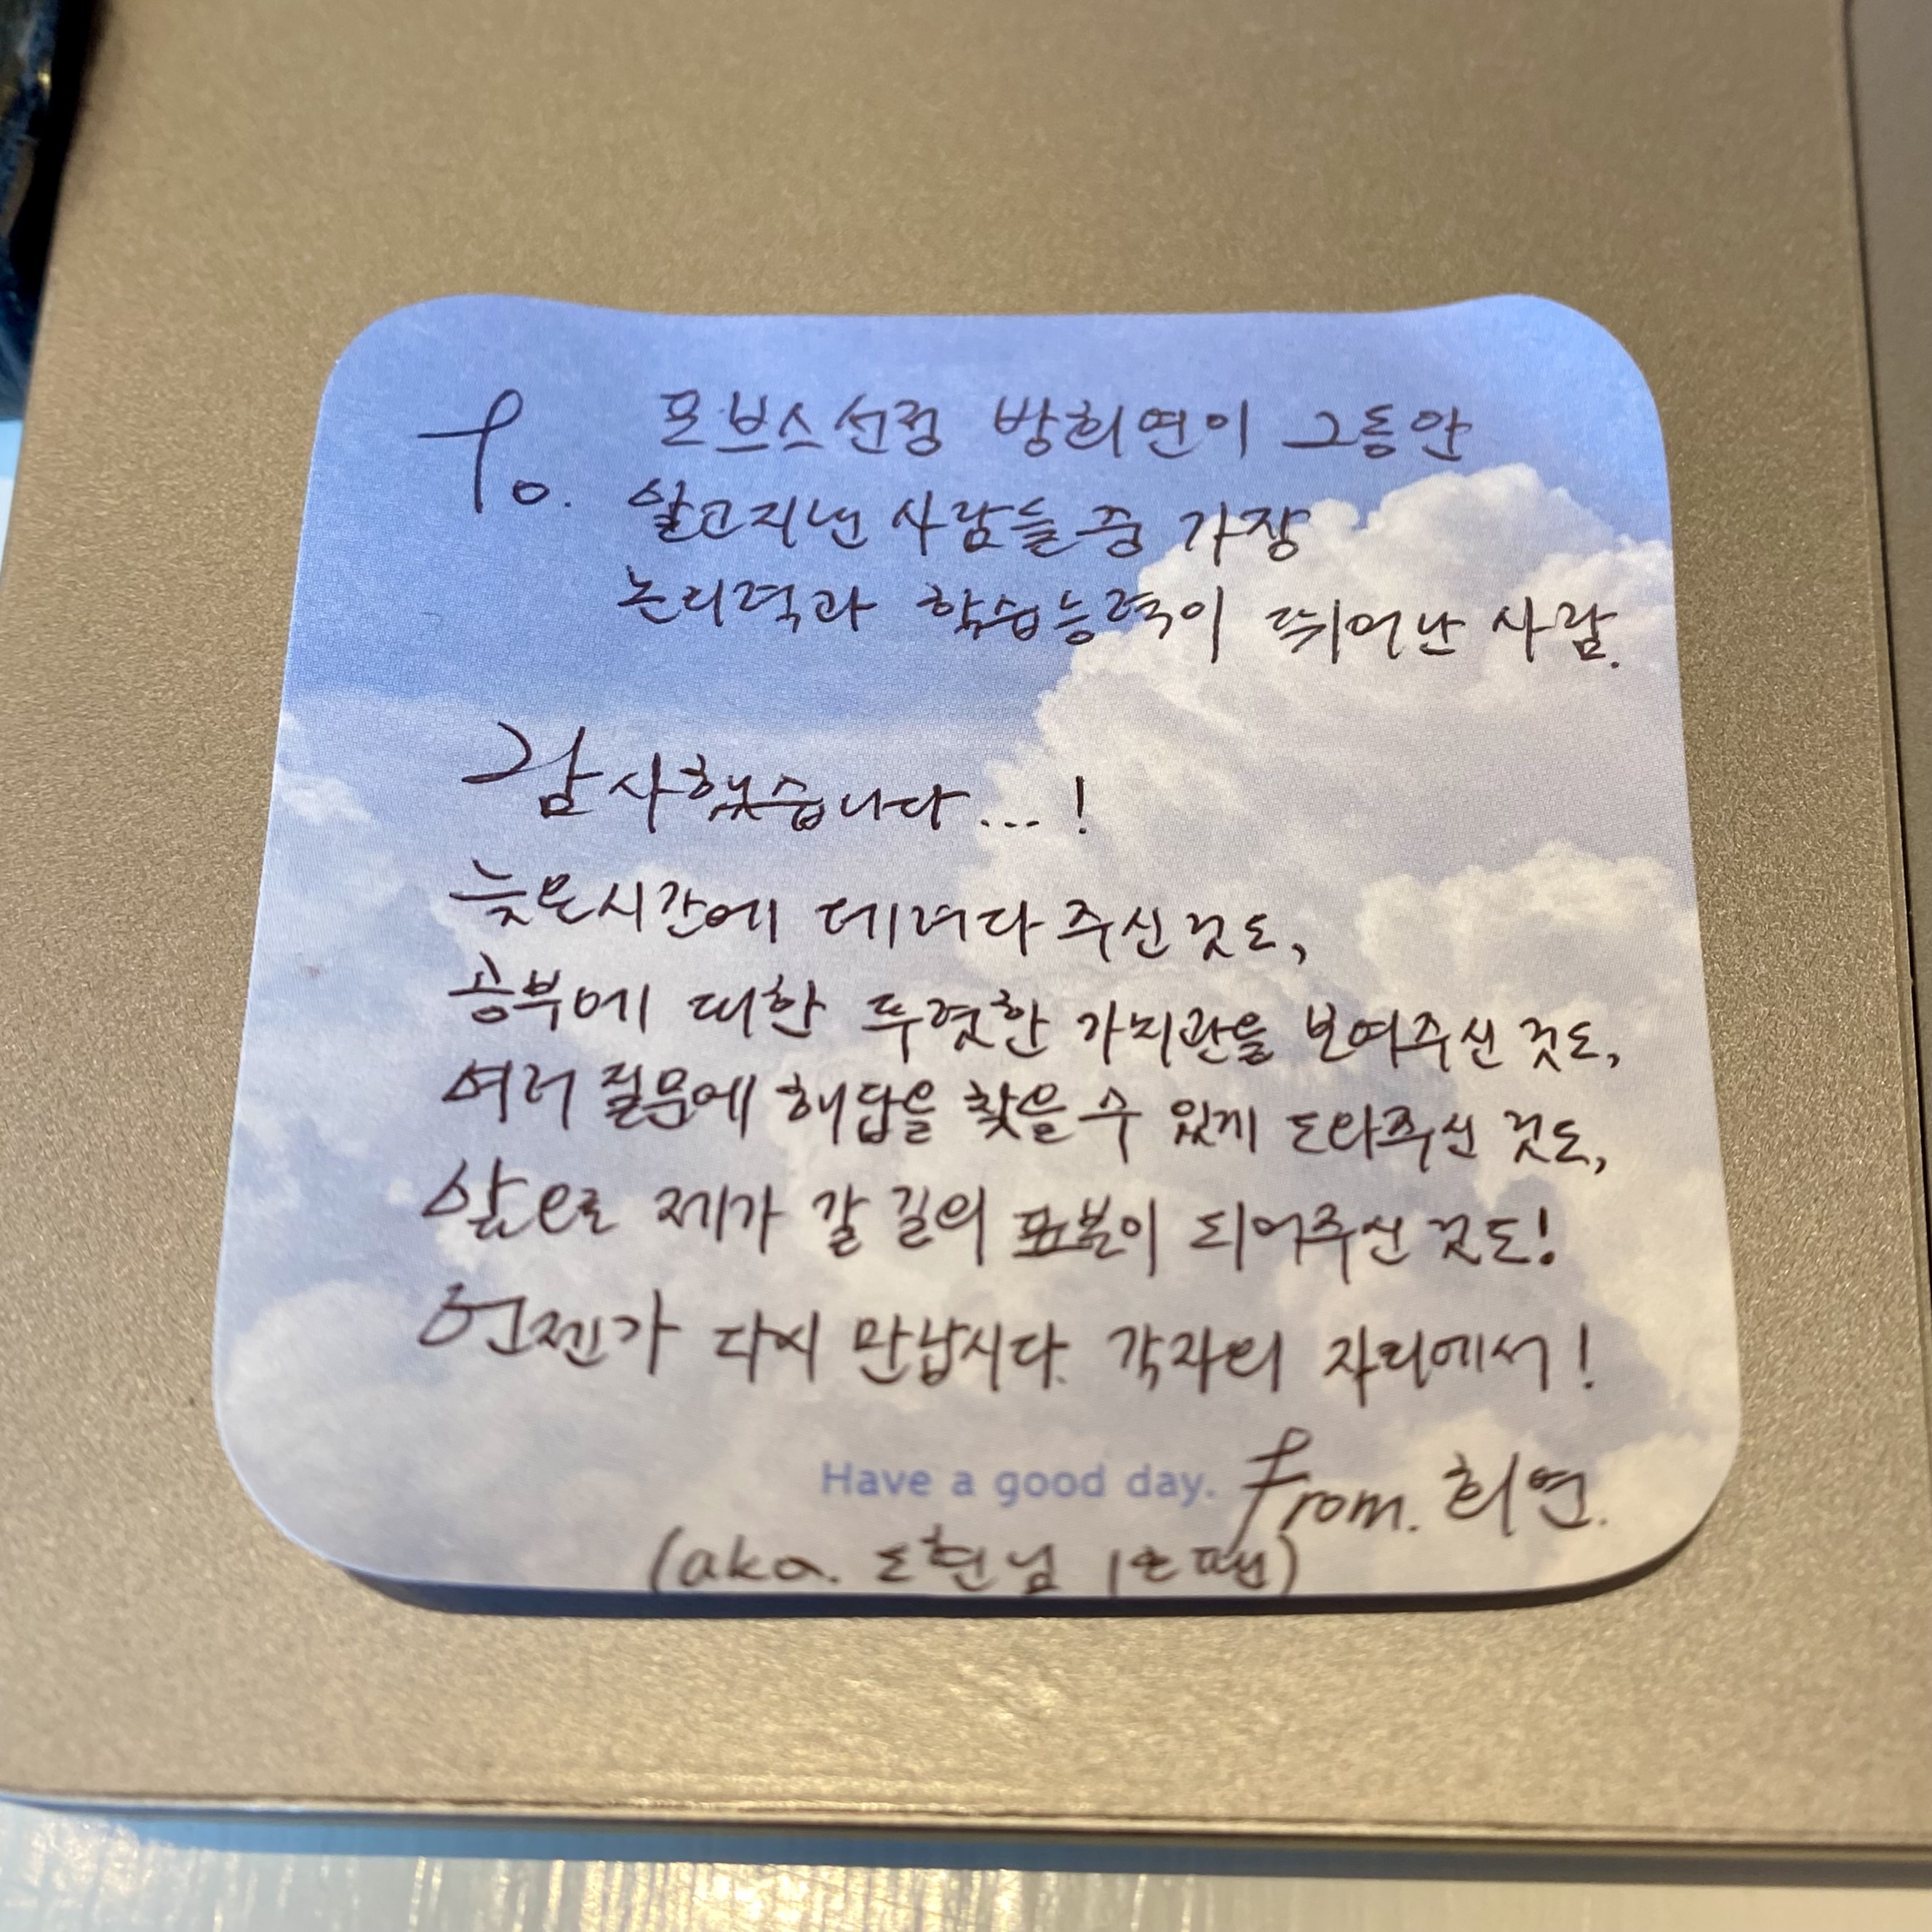 To. 포브스선정 방희연이 그동안
알고지낸 사람들 중 가장
논리력과 학습능력이 뛰어난 사람.
감사했습니다...!
늦은시간에 데려다 주신것도,
공부에 대한 뚜렷한 가치관을 보여주신 것도,
여러 질문에 해답을 찾을 수 있게 도와주신 것도,
앞으로 제가 갈 길의 표본이 되어주신 것도!
언젠가 다시 만납시다. 각자의 자리에서!
Have a good day. From. 희연.
(aka. 도현님 1호팬)